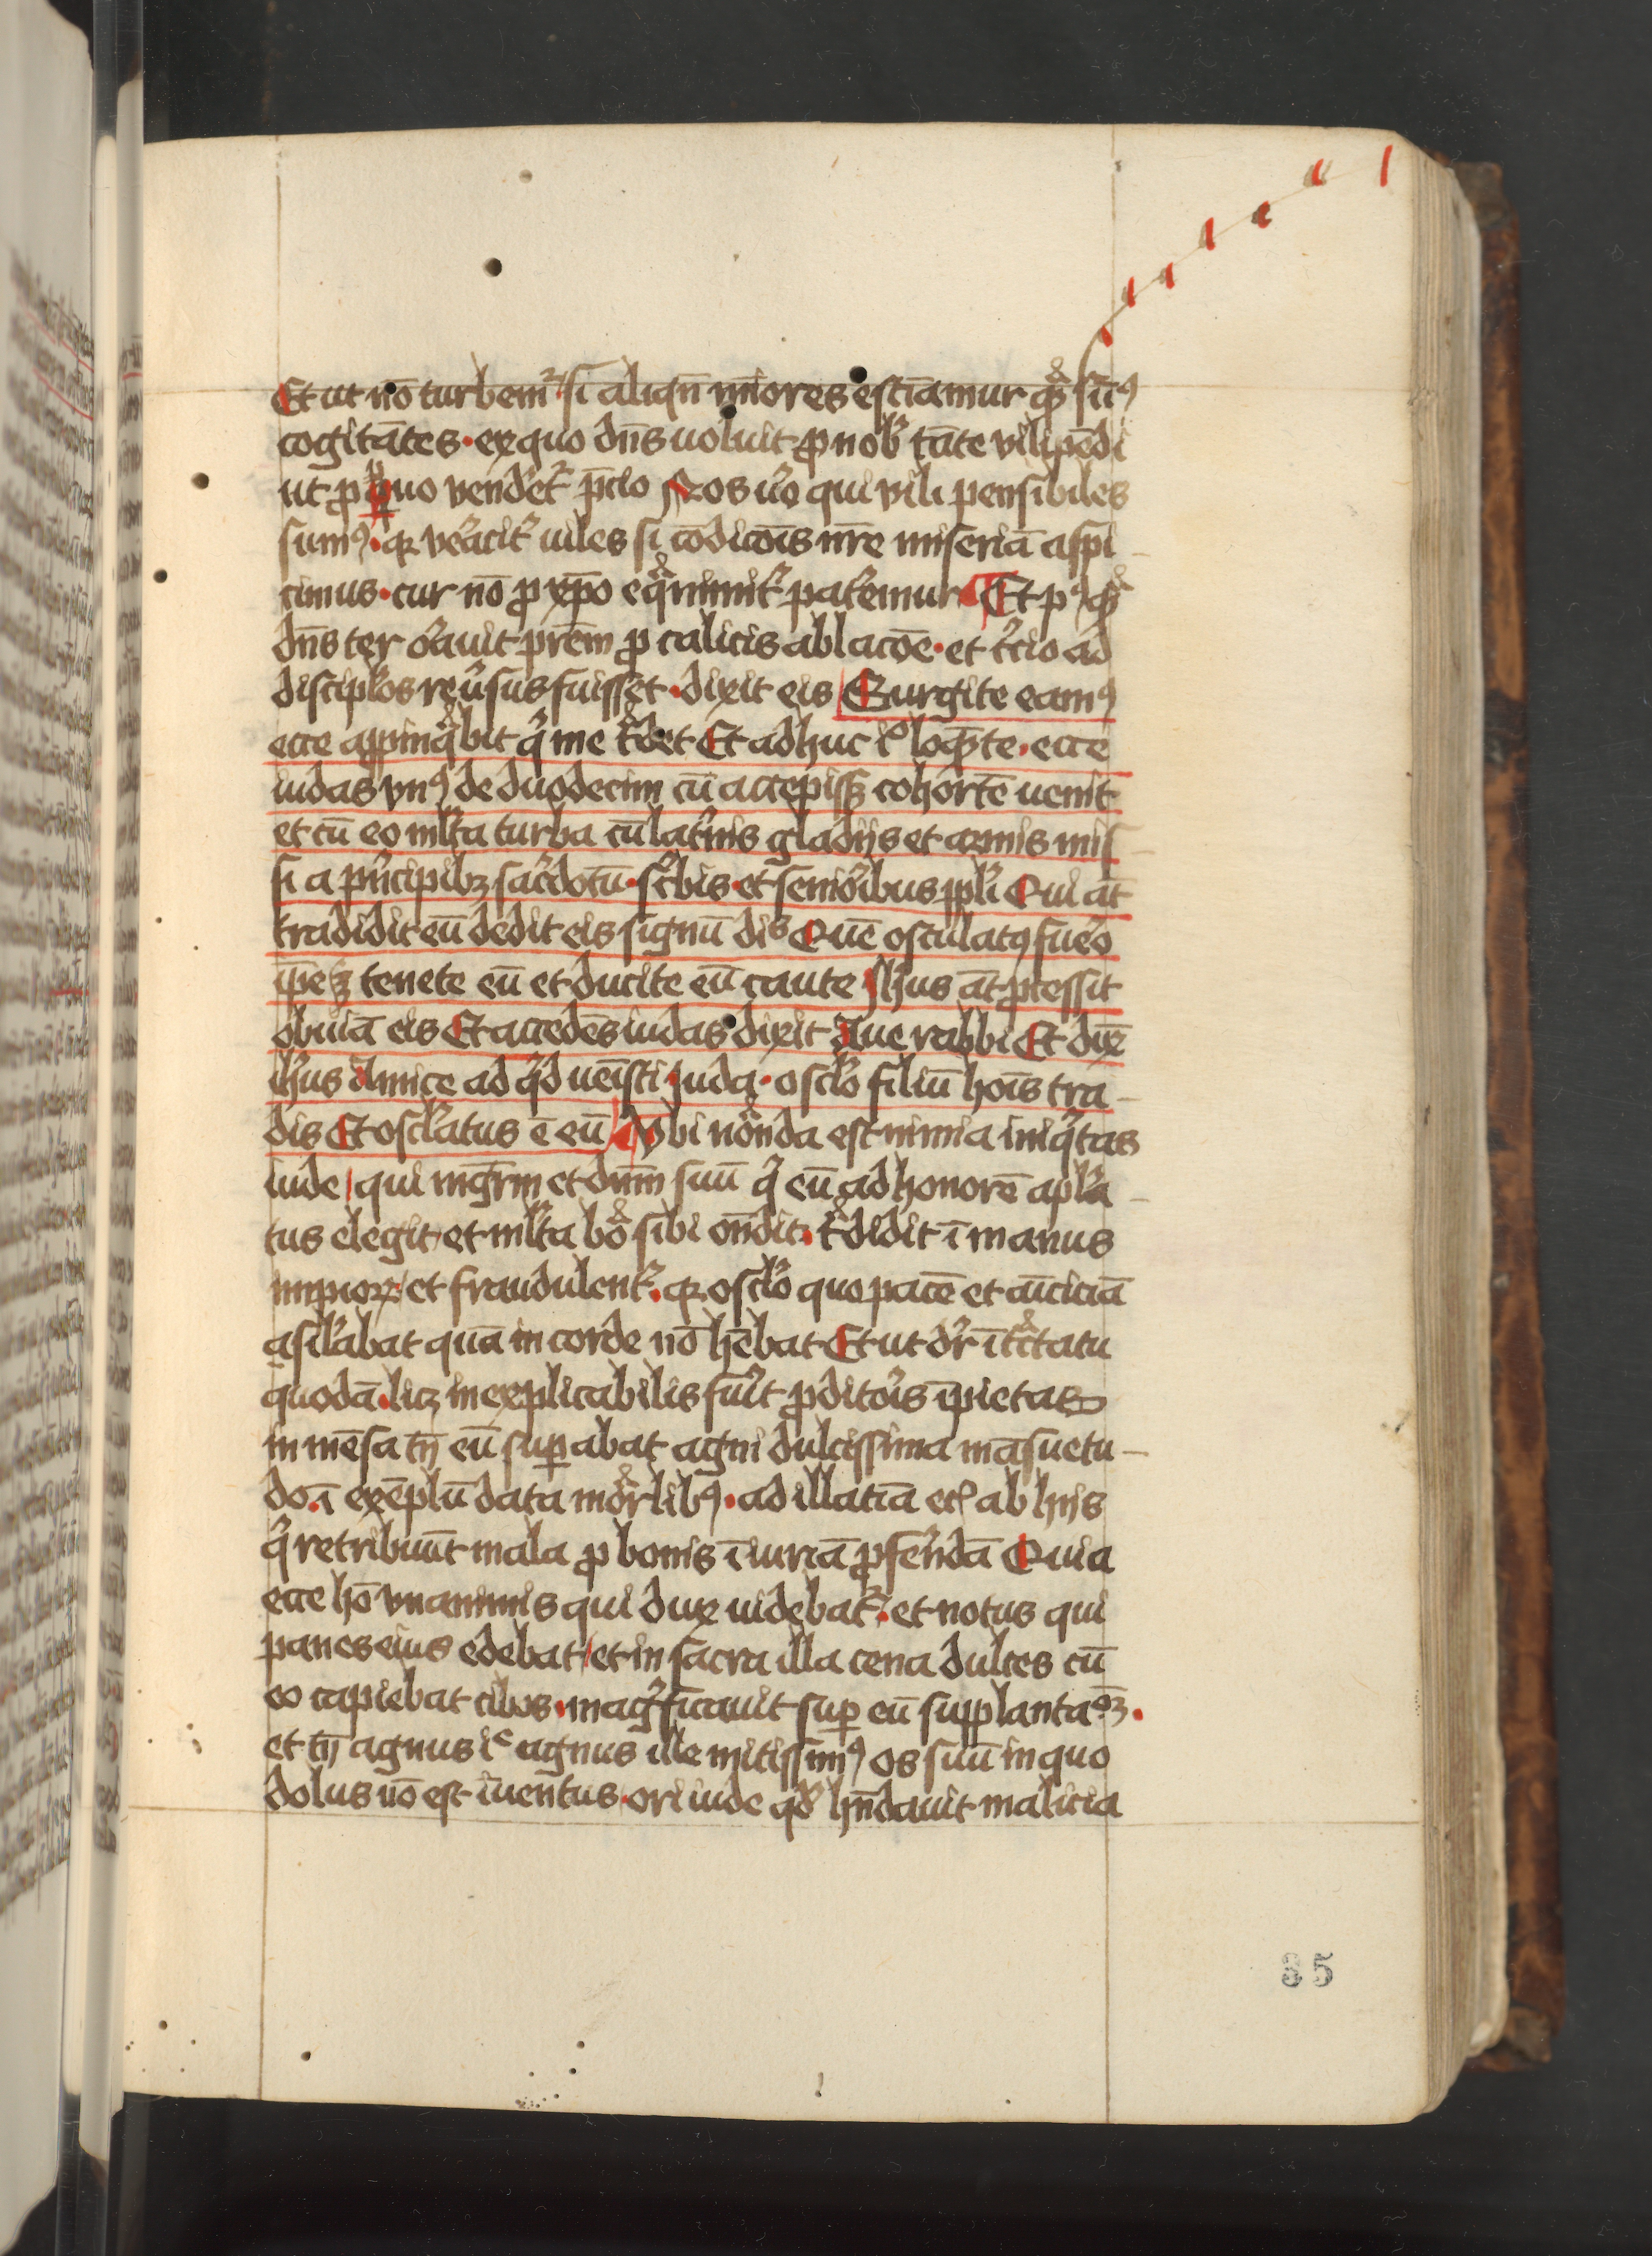 Et ut nō turbem᷑ si aliqn̄ mīores estīamur qͣ sūꝯ
cogitātes · ex quo dn̄s uoluit ꝓ nob̾ tāte vilipēdi
ut ꝓ quo vendet᷑ p̄cio Nos u̾o qui vili pensibiles
sumꝯ · ꝙ ve̾acit᷑ uiles si cōdicōis nr̄e miseriā aspi
cimus · cur nō ꝓ xp̄o eqͣnimit᷑ pat̾emur Et pꝯ qͣ
dn̄s ter o̾auit pr̄em ꝓ calicis ablacōe · et t̾cio ad
discipl̾os reu̾sus fuisset · dixit eis Surgite eamꝯ
ecce appinqͣbit q̇ me tͣdet Et adhuc iᵒ loqͣte · ecce
iudas vnꝯ de duodecim cū accepissꝫ cohortē uenit
et cū eo ml̾ta turba cū lat̾nis gladijs et armis mis
si a p̾ncipibꝫ sac̾dotū · sc̾bis · et senio̾ibus ppl̾i Qui at̄
tradidit eū dedit eis signū diˢ Quē osculatꝯ fue̾o
ip̄e ꝫ tenete eū et ducite eū caute Ih̾us at̄ p̾cessit
obuiā eis Et accedēs iudas dixit Aue rabbi Et dix̄
ih̾us Amice ad qͥd ueīsti Juda · oscl̾o filiū hoīs tra
dis Et oscl̾atus ē eū Vbi nōnda est nimia iniqͥtas
iude qui mgr̄m et dnm̄ suū qͥ eū ad honorē apl̾a
tus elegit et ml̾ta boͣ sibi on̄dit · tͣdidit ī manus
impioꝝ et fraudulent᷑ · ꝙ oscl̾o quo pacē et amiciciā
asil̾abat quā in corde nō hēbat Et ut dr̄ ī tͣctatu
quodā · licꝫ inexplicabilis fu̾it ꝓdito̾is ip̄ietas
in mēsa tn̄ eū suꝑabat agni dulcissima māsuetu
do · ī exēplū data moͣrlibꝯ · ad illatā etᶜ ab hijs
qͥ retribuūt mala ꝓ bonis īiuriā ꝓfe̾ndā Quia
ecce hō vnanimis qui dux uidebat᷑ · et notus qui
panes eius edebat et in sacra illa cena dulces cū
eo capiebat cibos · magͥficauit suꝑ eū supplantaᵒꝫ ·
et tn̄ agnus iᶜ agnus ille mitissimꝯ os suū in quo
dolus nō est iuentus · ori iude qd̾ hn̄dauit malicia
85